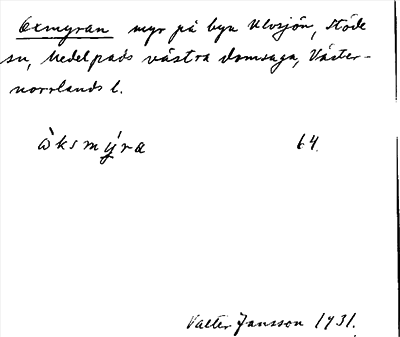 Oxmyran myr på byn Ulvsjön, Stöde
sn, Medelpads västra domsaga, Väster-
norrlands l.
òksmýra 64.
Valter Jansson 1931.